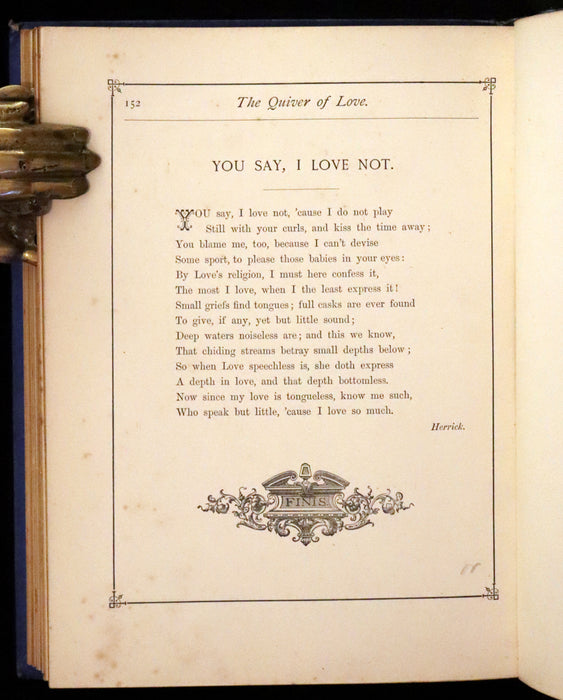 152
The Quiver of Love.
YOU SAY, I LOVE NOT.
YOU say, I love not, 'cause I do not play
Still with your curls, and kiss the time away;
You blame me, too, because I can't devise
Some sport, to please those babies in your eyes:
By Love's religion, I must here confess it,
The most I love, when I the least express it!
Small griefs find tongues; full casks are ever found
To give, if any, yet but little sound;
Deep waters noiseless are; and this we know,
That chiding streams betray small depths below;
So when Love speechless is, she doth express
A depth in love, and that depth bottomless.
Now since my love is tongueless, know me such,
Who speak but little, 'cause I love so much.
Herrick.
FINIS